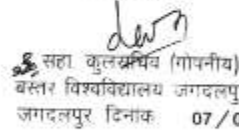 सहा. कुलसचिव (गोपनीय)
बस्तर विश्वविद्यालय जगदलपु
जगदलपुर दिनांक 07/0